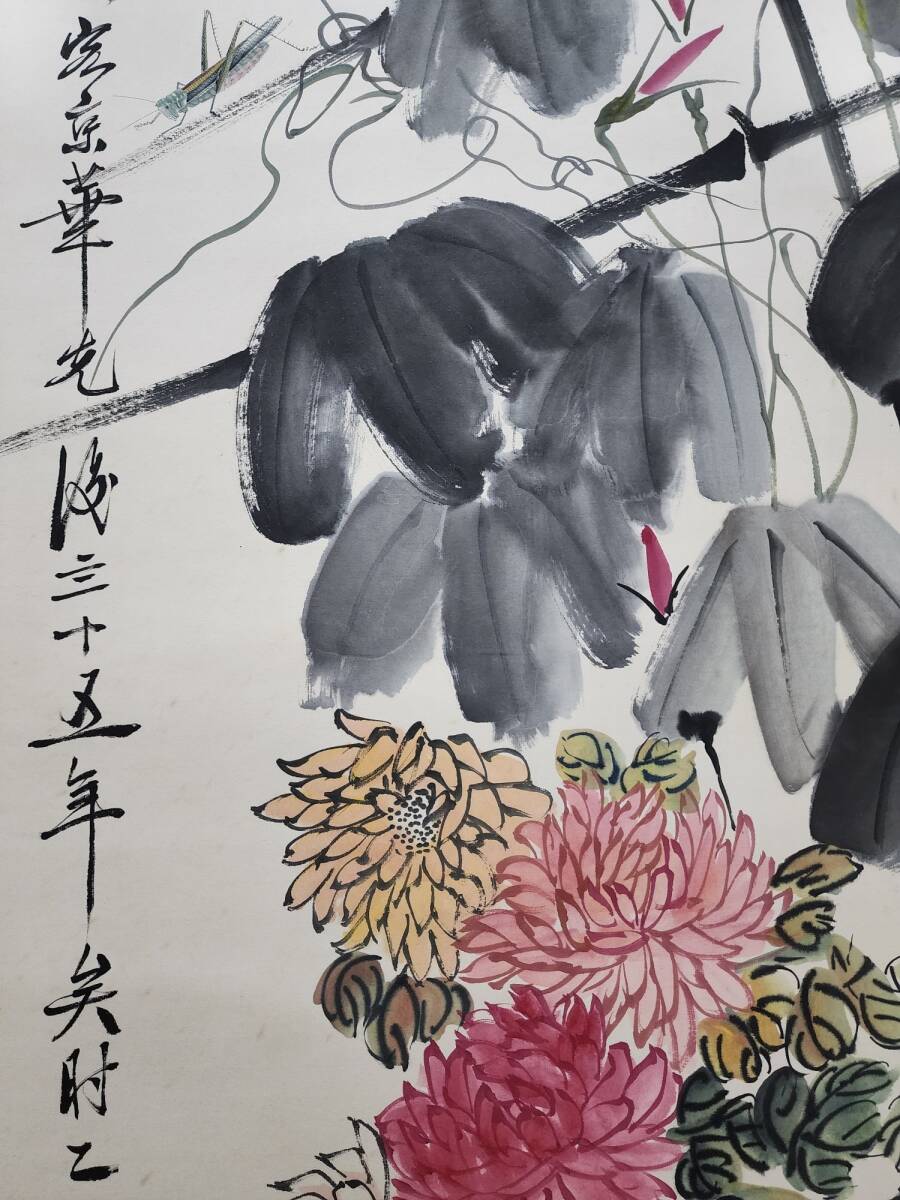 客京華先後三十五年矣时乙